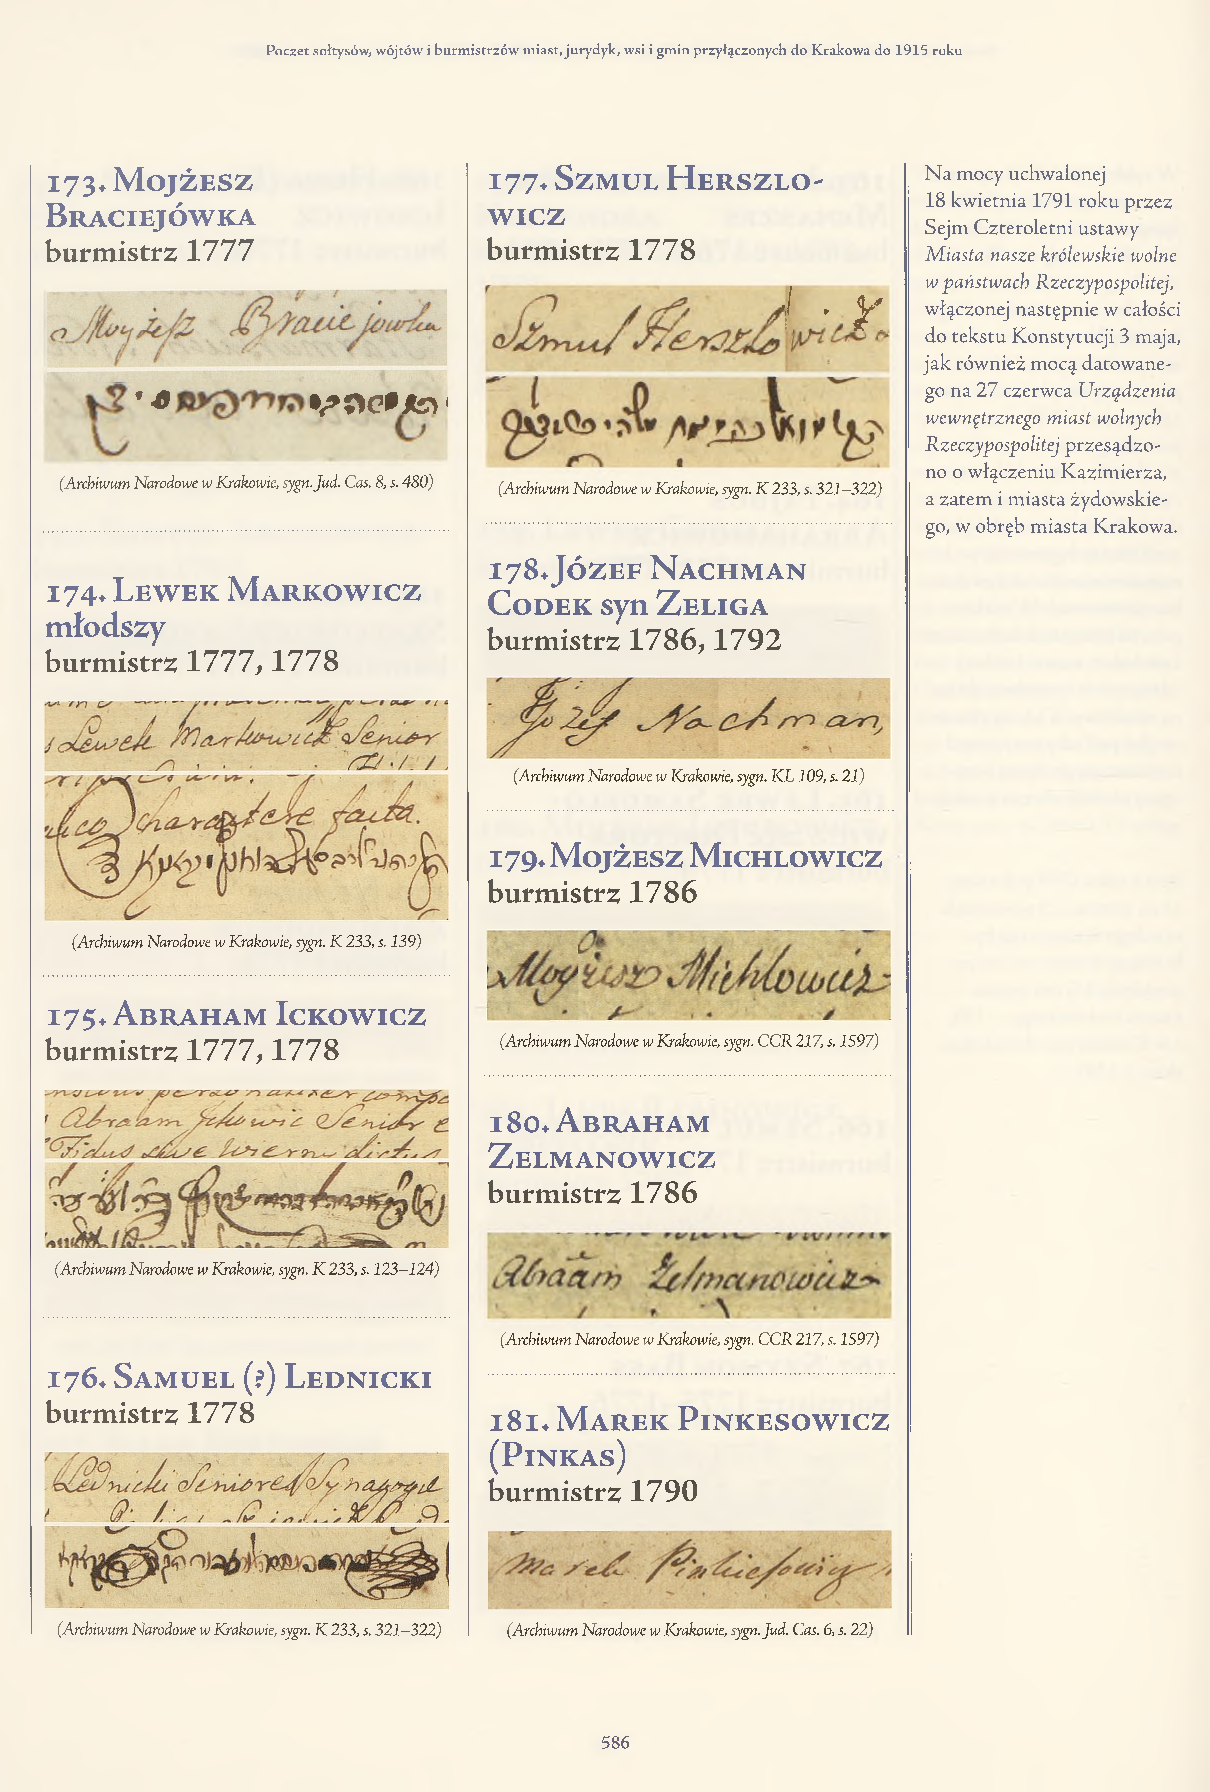 Poczet sołtysów, wójtów i burmistrzów miast, jurydyk, wsi i gmin przyłączonych do Krakowa do 1915 roku
173. Mojżesz
Braciejówka
burmistrz 1777
Moyżesz Braciejowka
(Archiwum Narodowe w Krakowie, sygn. Jud. Cas. 8, s. 480)
174. Lewek Markowicz
młodszy
burmistrz 1777, 1778
Lewek Markowicz Senior
charactere facta.
(Archiwum Narodowe w Krakowie, sygn. K 233, s. 139)
175. Abraham Ickowicz
burmistrz 1777, 1778
Abraam Ickowic Senior
Fidus sive Wierny dictus
(Archiwum Narodowe w Krakowie, sygn. K 233, s. 123–124)
176. Samuel (?) Lednicki
burmistrz 1778
Lednicki Seniores Synagogae
(Archiwum Narodowe w Krakowie, sygn. K 233, s. 321–322)
177. Szmul Herszlo-
wicz
burmistrz 1778
Szmul Herszlowicz
(Archiwum Narodowe w Krakowie, sygn. K 233, s. 321–322)
178. Józef Nachman
Codek syn Zeliga
burmistrz 1786, 1792
Jozef Nachman,
(Archiwum Narodowe w Krakowie, sygn. KL 109, s. 21)
179. Mojżesz Michlowicz
burmistrz 1786
Moyżesz Michlowicz
(Archiwum Narodowe w Krakowie, sygn. CCR 217, s. 1597)
180. Abraham
Zelmanowicz
burmistrz 1786
Abraam Zelmanowicz
(Archiwum Narodowe w Krakowie, sygn. CCR 217, s. 1597)
181. Marek Pinkesowicz
(Pinkas)
burmistrz 1790
Marek Pinkiesowicz
(Archiwum Narodowe w Krakowie, sygn. Jud. Cas. 6, s. 22)
Na mocy uchwalonej
18 kwietnia 1791 roku przez
Sejm Czteroletni ustawy
Miasta nasze królewskie wolne
w państwach Rzeczypospolitej,
włączonej następnie w całości
do tekstu Konstytucji 3 maja,
jak również mocą datowane-
go na 27 czerwca Urządzenia
wewnętrznego miast wolnych
Rzeczypospolitej przesądzo-
no o włączeniu Kazimierza,
a zatem i miasta żydowskie-
go, w obręb miasta Krakowa.
586